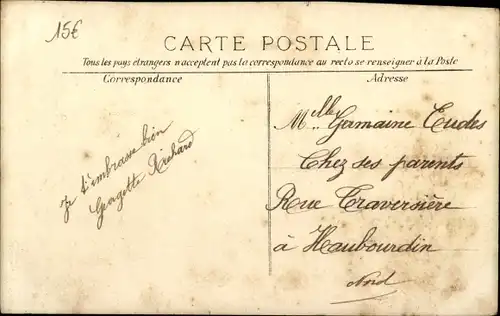 15€
CARTE POSTALE
Tous les pays étrangers n'acceptent pas la correspondance au recto se renseigner à la Poste
Correspondance
Je t'embrasse bien
Georgette Richard
Adresse
Mlle Germaine Eudes
Chez ses parents
Rue Traversière
à Haubourdin
Nord